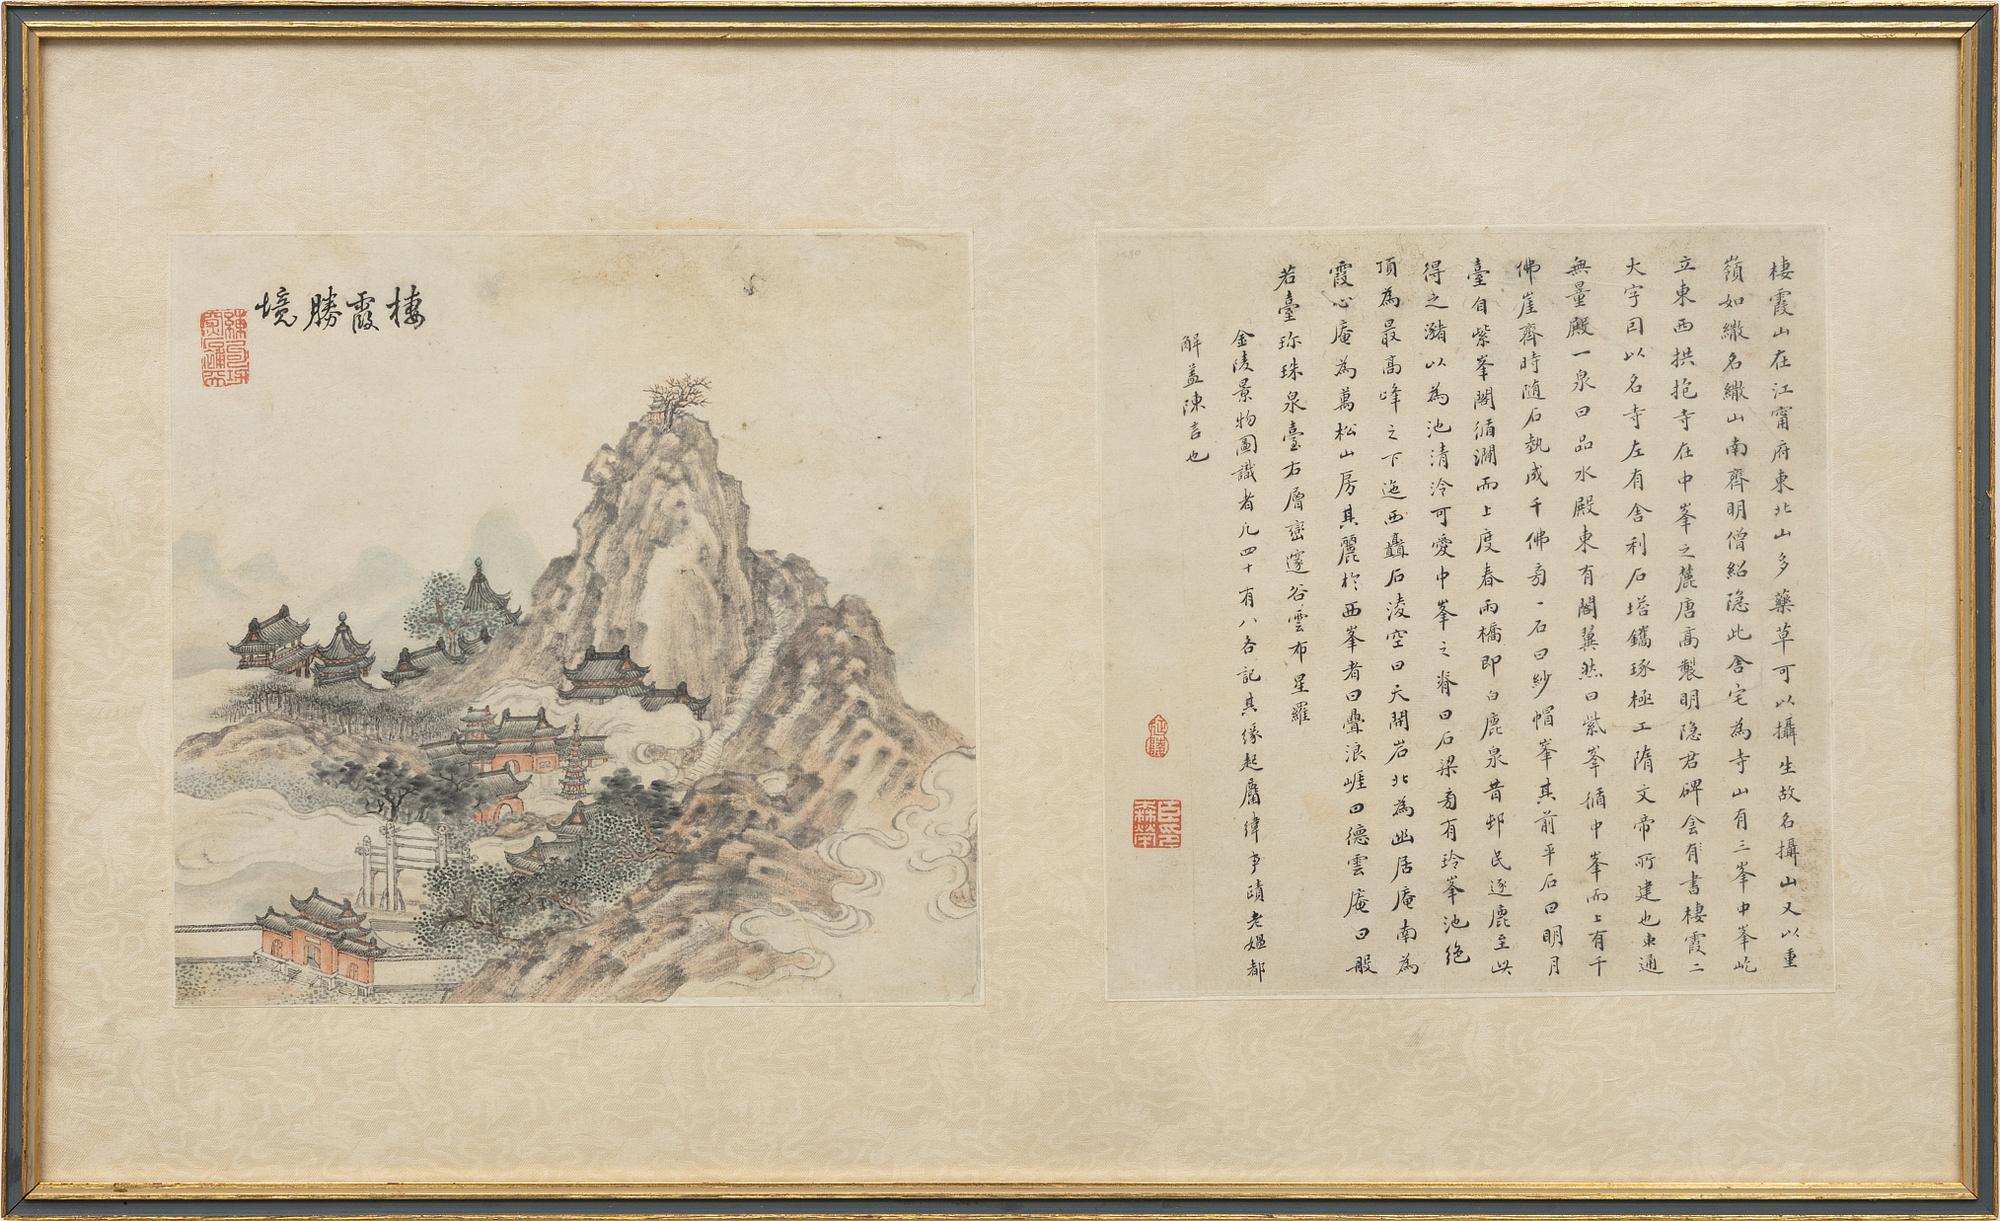 棲霞勝境
棲霞山在江甯府東北山多藥草可以攝生故名攝山又以重
嶺如繖名繖山南齊明僧紹隐此舍宅為寺山有三峯中峯屹
立東西拱抱寺在中峯之麓唐高製明隐君碑會有書棲霞二
大字囙以名寺左有舍利石塔鐫琢極工隋文帝所建也東通
無量殿一泉曰品水殿東有閣翼然曰紫峯循中峯而上有千
佛崖齊時随石埶成千佛旁一石曰紗帽峯其前平石曰明月
臺自紫峯閣循澗而上度春雨橋即白鹿泉昔邨民逐鹿至此
得之瀦以為池清泠可愛中峯之脊曰石梁旁有玲峯池绝
頂為最高峰之下迤西矗石淩空曰天開岩北為幽居庵南為
霞心庵為萬松山房其麗於西峯者曰疊浪崕曰德雲庵曰般
若臺珍珠泉臺右層巒邃谷雲布星羅
金陵景物圖識者凡四十有八各記其缘起屬緯事蹟老嫗都
解蓋陳言也
臣印
森榮